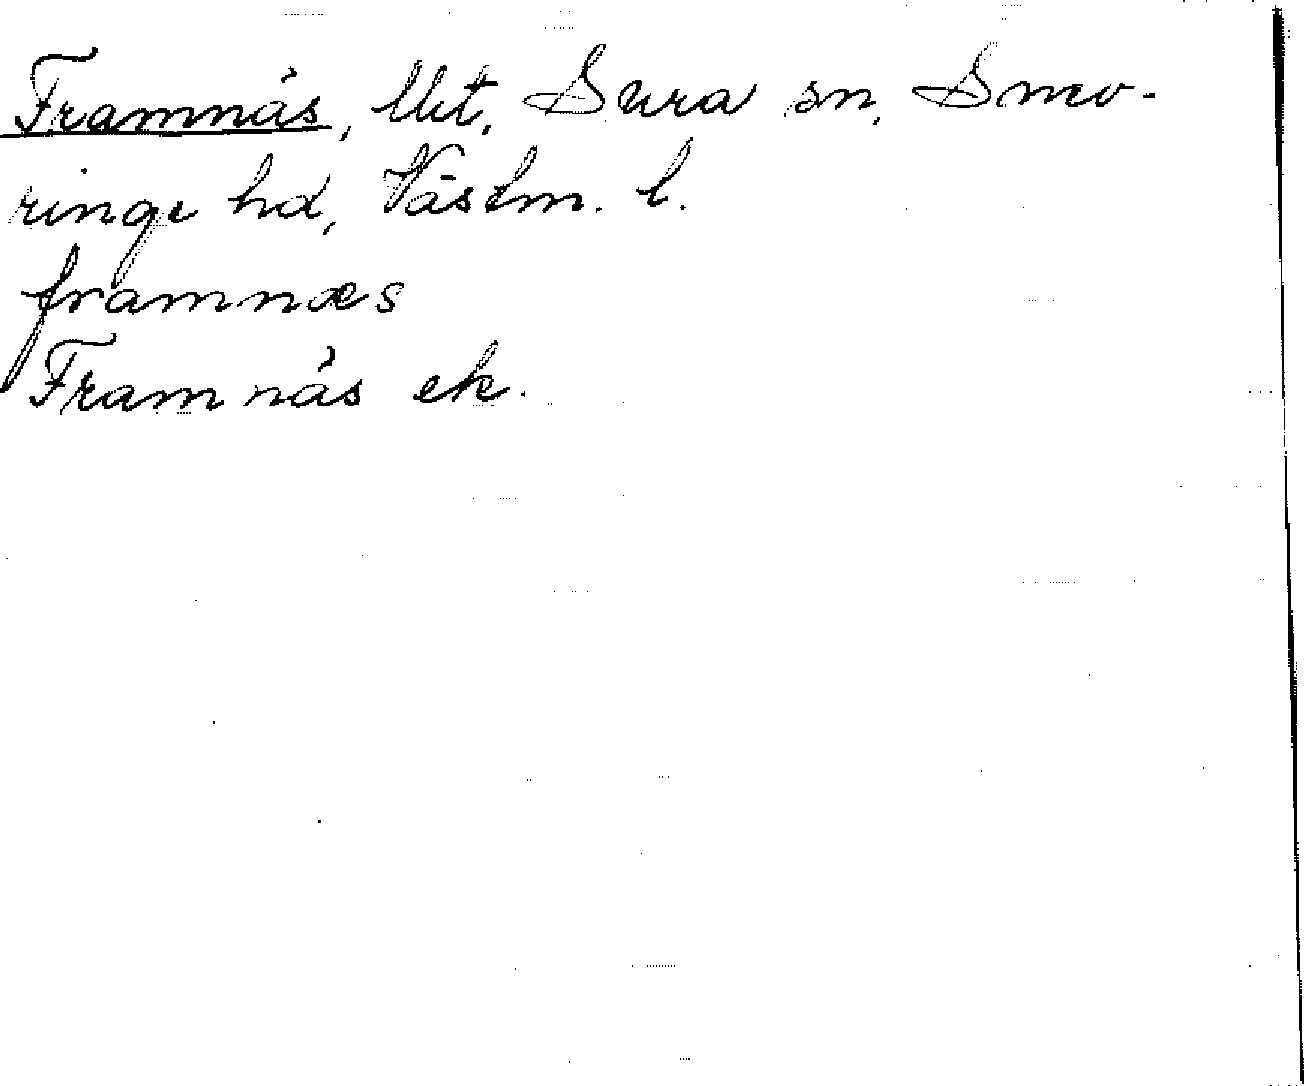 Framnäs, Utt. Sura sn, Snev-
ringe hd, Västm. l.
framnæs
Framnäs ek.